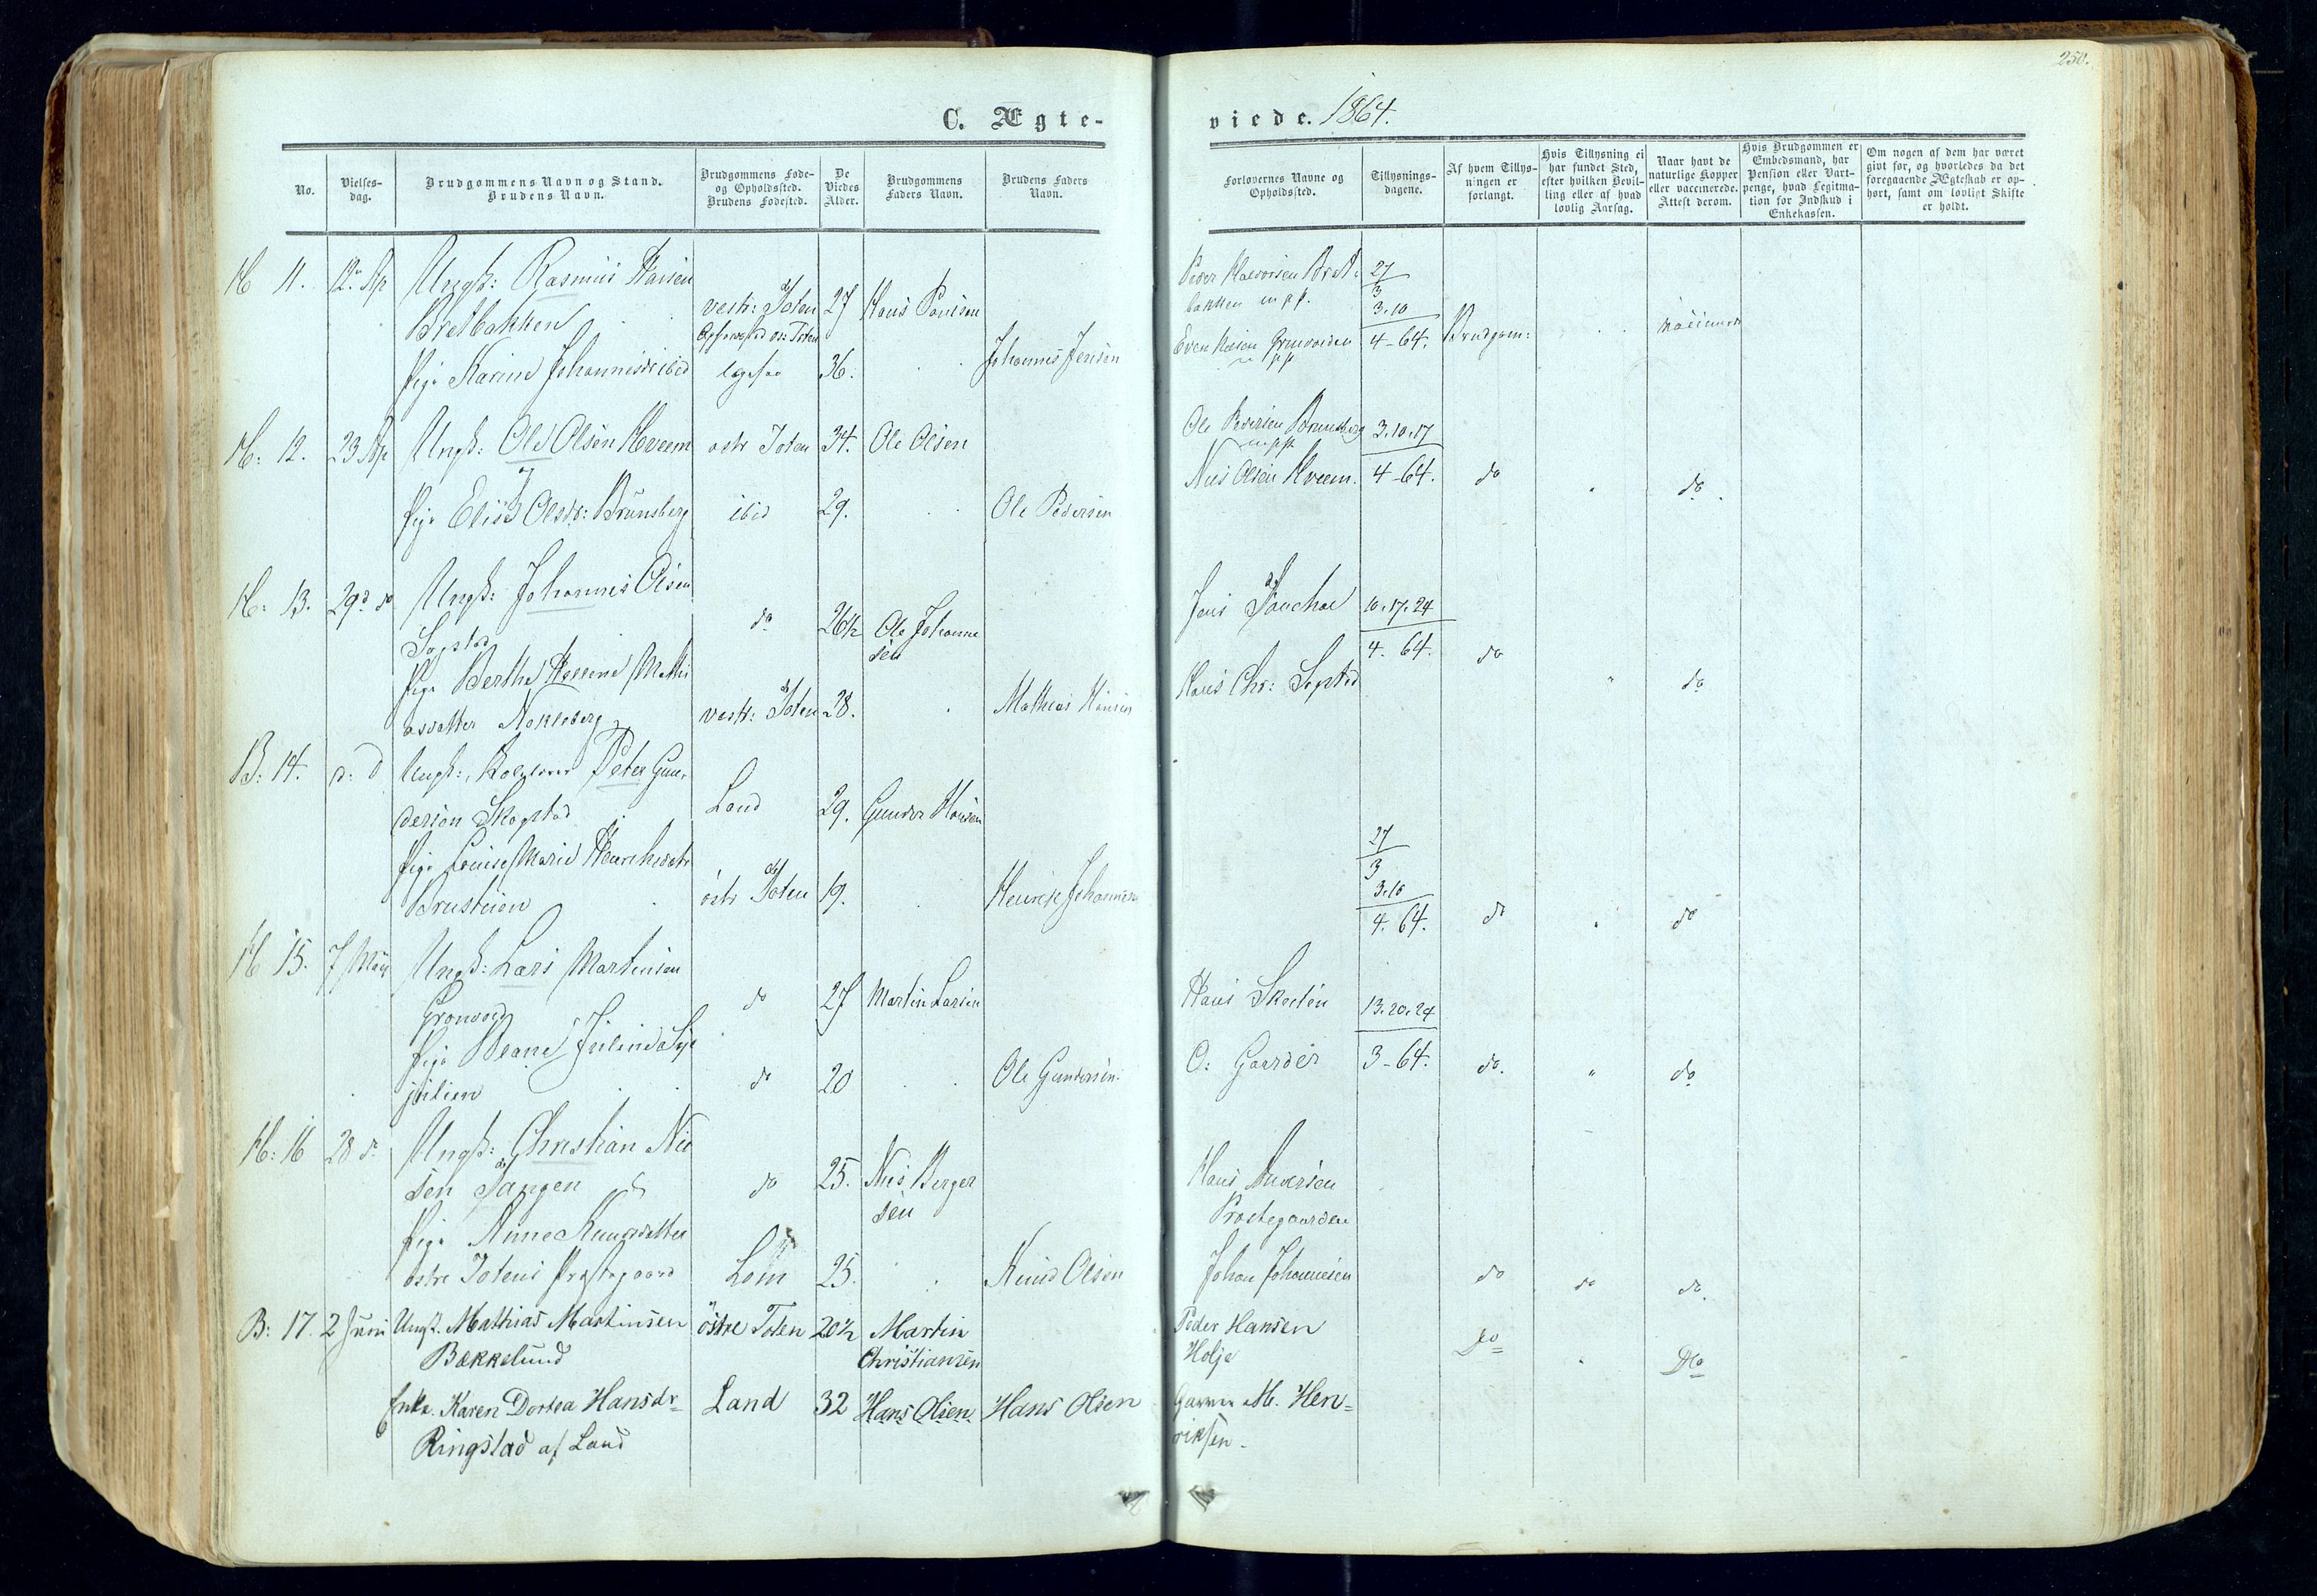 250.
C. Ægte-
viede. 1864.
No.
Vielses-
dag.
Brudgommens Navn og Stand.
Brudens Navn.
Brudgommens Føde-
og Opholdssted.
Brudens Fødested.
De
Viedes
Alder.
Brudgommens
Faders Navn.
Brudens Faders
Navn.
Forlovernes Navne og
Opholdssted.
Tillysnings-
dagene.
Af hvem Tillys-
ningen er
forlangt.
Hvis Tillysning ei
har fundet Sted,
efter hvilken Bevil-
ling eller af hvad
lovlig Aarsag.
Naar havt de
naturlige Kopper
eller vaccinerede.
Attest derom.
Hvis Brudgommen er
Embedsmand, har
Pension eller Vart-
penge, hvad Legitima-
tion for Indskud i
Enkekassen.
Om nogen af dem har været
givt før, og hvorledes da det
foregaaende Ægteskab er op-
hørt, samt om lovligt Skifte
er holdt.
H 11. 12 Ap Ungk: Rasmus Hansen
Bretbakken
vestr: Toten 27 Hans Poulsen
Pige Karine Johannisdr ibid 36. Johannes Jensen
Peder Halvorsen Bret-
bakken mpp.
27
3
3.10
4-64. Brudgom:
Even mpp
H: 12. 23 Ap Ungk: Ole Olsen Hveem ostr Toten 34. Ole Olsen
Pige Elise Olsdr: Brunsberg ibid 29. Ole Pedersen
Ole Pedersen Brunsberg 3.10.17
mpp
Nils Olsen Hveem. 4-64. do do.
H: 13. 29d do Ungk: Johannes Olsen
Sogstad do 26½ Ole Johanne
sen
Pige Berthe Helene Mathi
asdatter Nøkleberg vestr: Toten 28. Mathias Hansen
10.17.24
4. 64. do do
Hans Chr: Sogstad
B: 14. d: d Ungk: Peter Gun-
dersen Skogstad Land 29. Gunder Hansen
Pige Louise Marie Henriksdatr
ostr Toten 19. Henrik Johannesen
27
3
3.10
4. 64. do do
H 15. 7 Mai Ungk: Lars Martinsen
Grønvold do 27 Martin Larsen
Pige
do 20 Ole Gundersen.
Hans 13.20.24
O: Gaarder 3-64. do. " do
H: 16 28 d. Ungk: Christian Nil
sen Tangen do 25. Nils Berger
sen
Pige Anne Knudsdatter
østre Totens Præstegaard Lom 25. Knud Olsen
Hans Andersen
Præstegaarden
Johan Johannesen do do do.
B: 17. 2 Juni Ungk. Mathias Martinsen østre Toten 20½ Martin
Bækkelund Christiansen
Enke. Karen Dortea Hansdr= Land 32 Hans Olsen Hans Olsen
Ringstad af Land
Peder Hansen
Holje Do Do
M. Hen=
riksen.